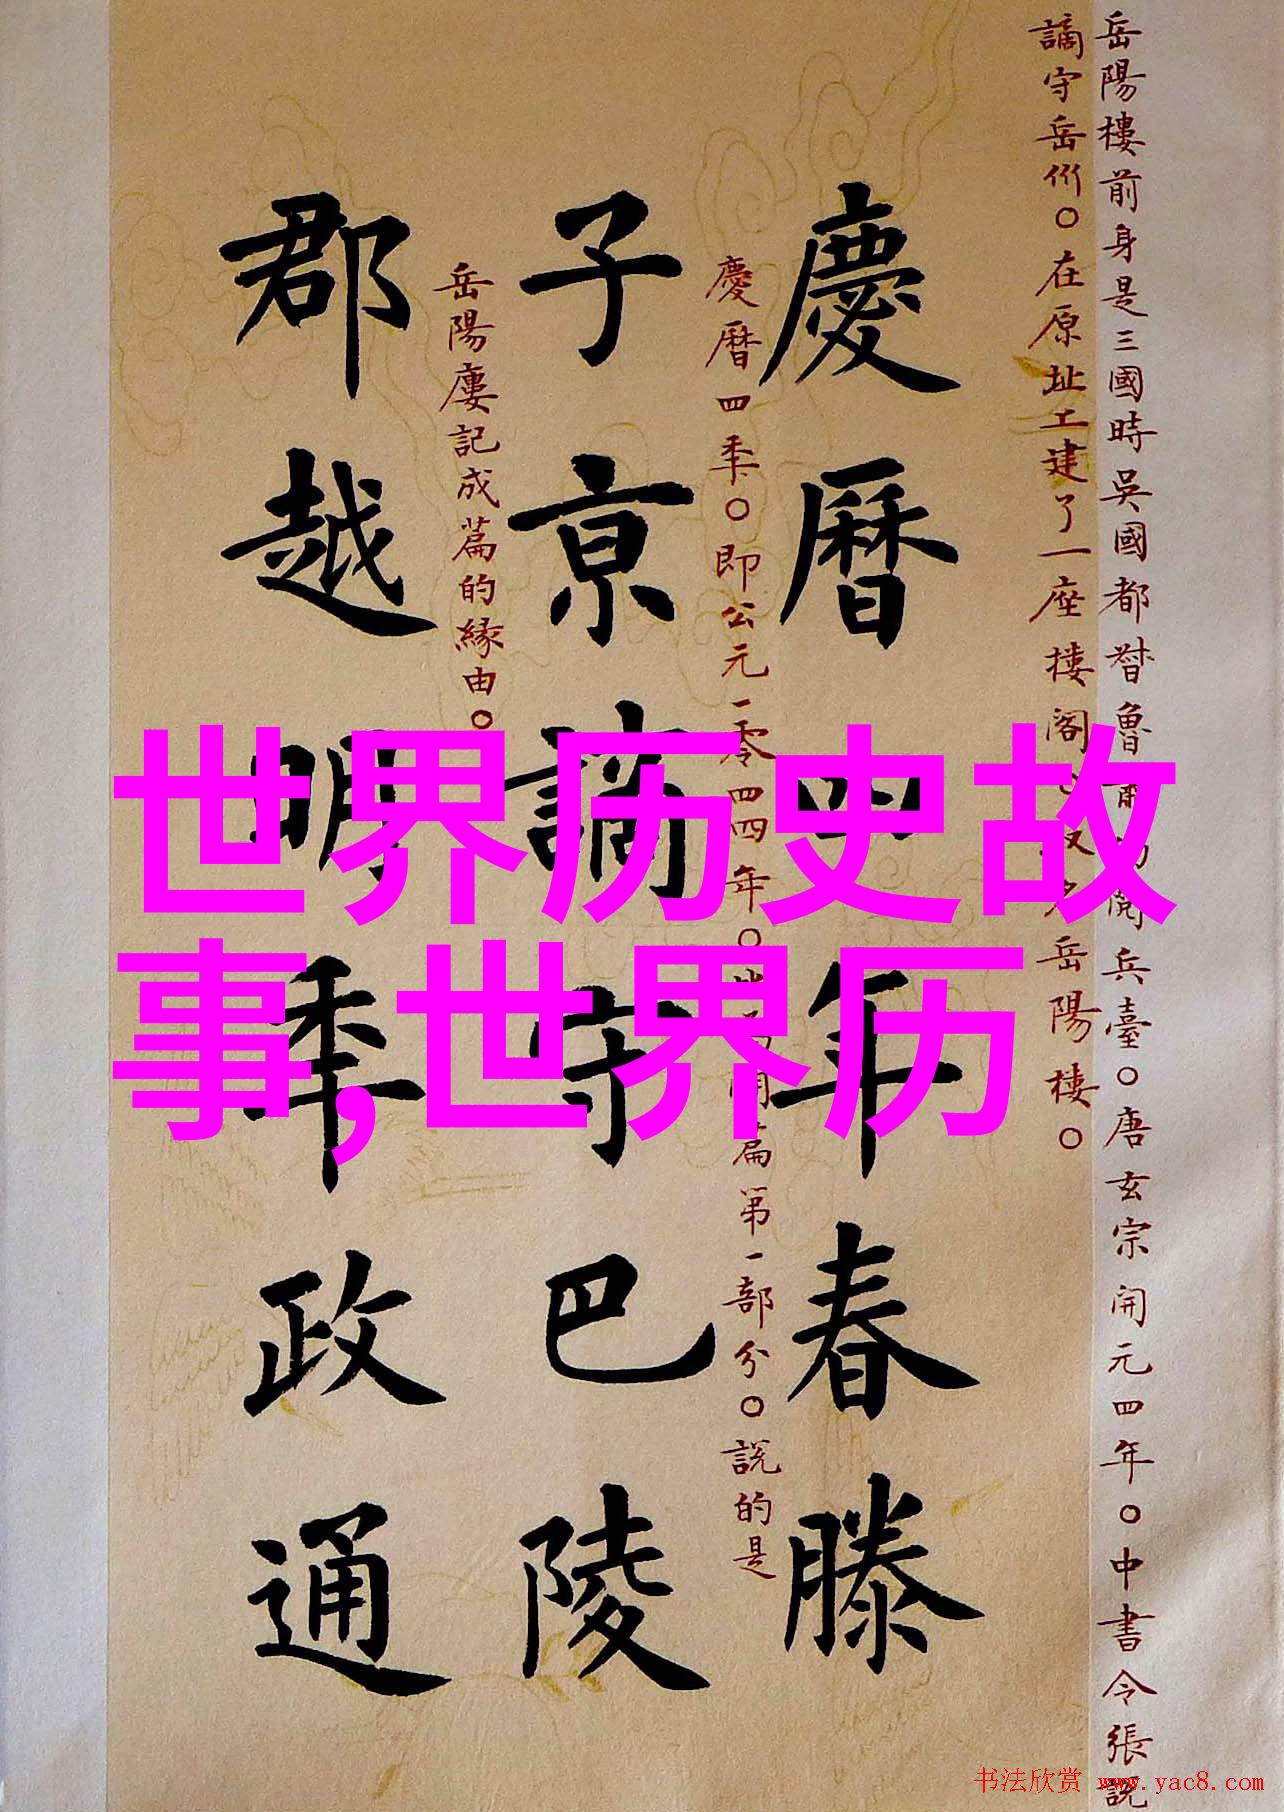 岳陽樓前身是三國時吳國都督魯肅的閱兵臺○唐玄宗開元四年○中書令張說
謫守岳州○在原址工建了一座樓閣○取名岳陽樓○
慶曆四年春滕
慶曆四年○即公元一零四四年○
篇第一部分○說的是
子京謫守巴陵
岳陽樓記成篇的緣由○
郡越明年政通
世界历史故
事,世界历
书法欣赏 www.yac8.com